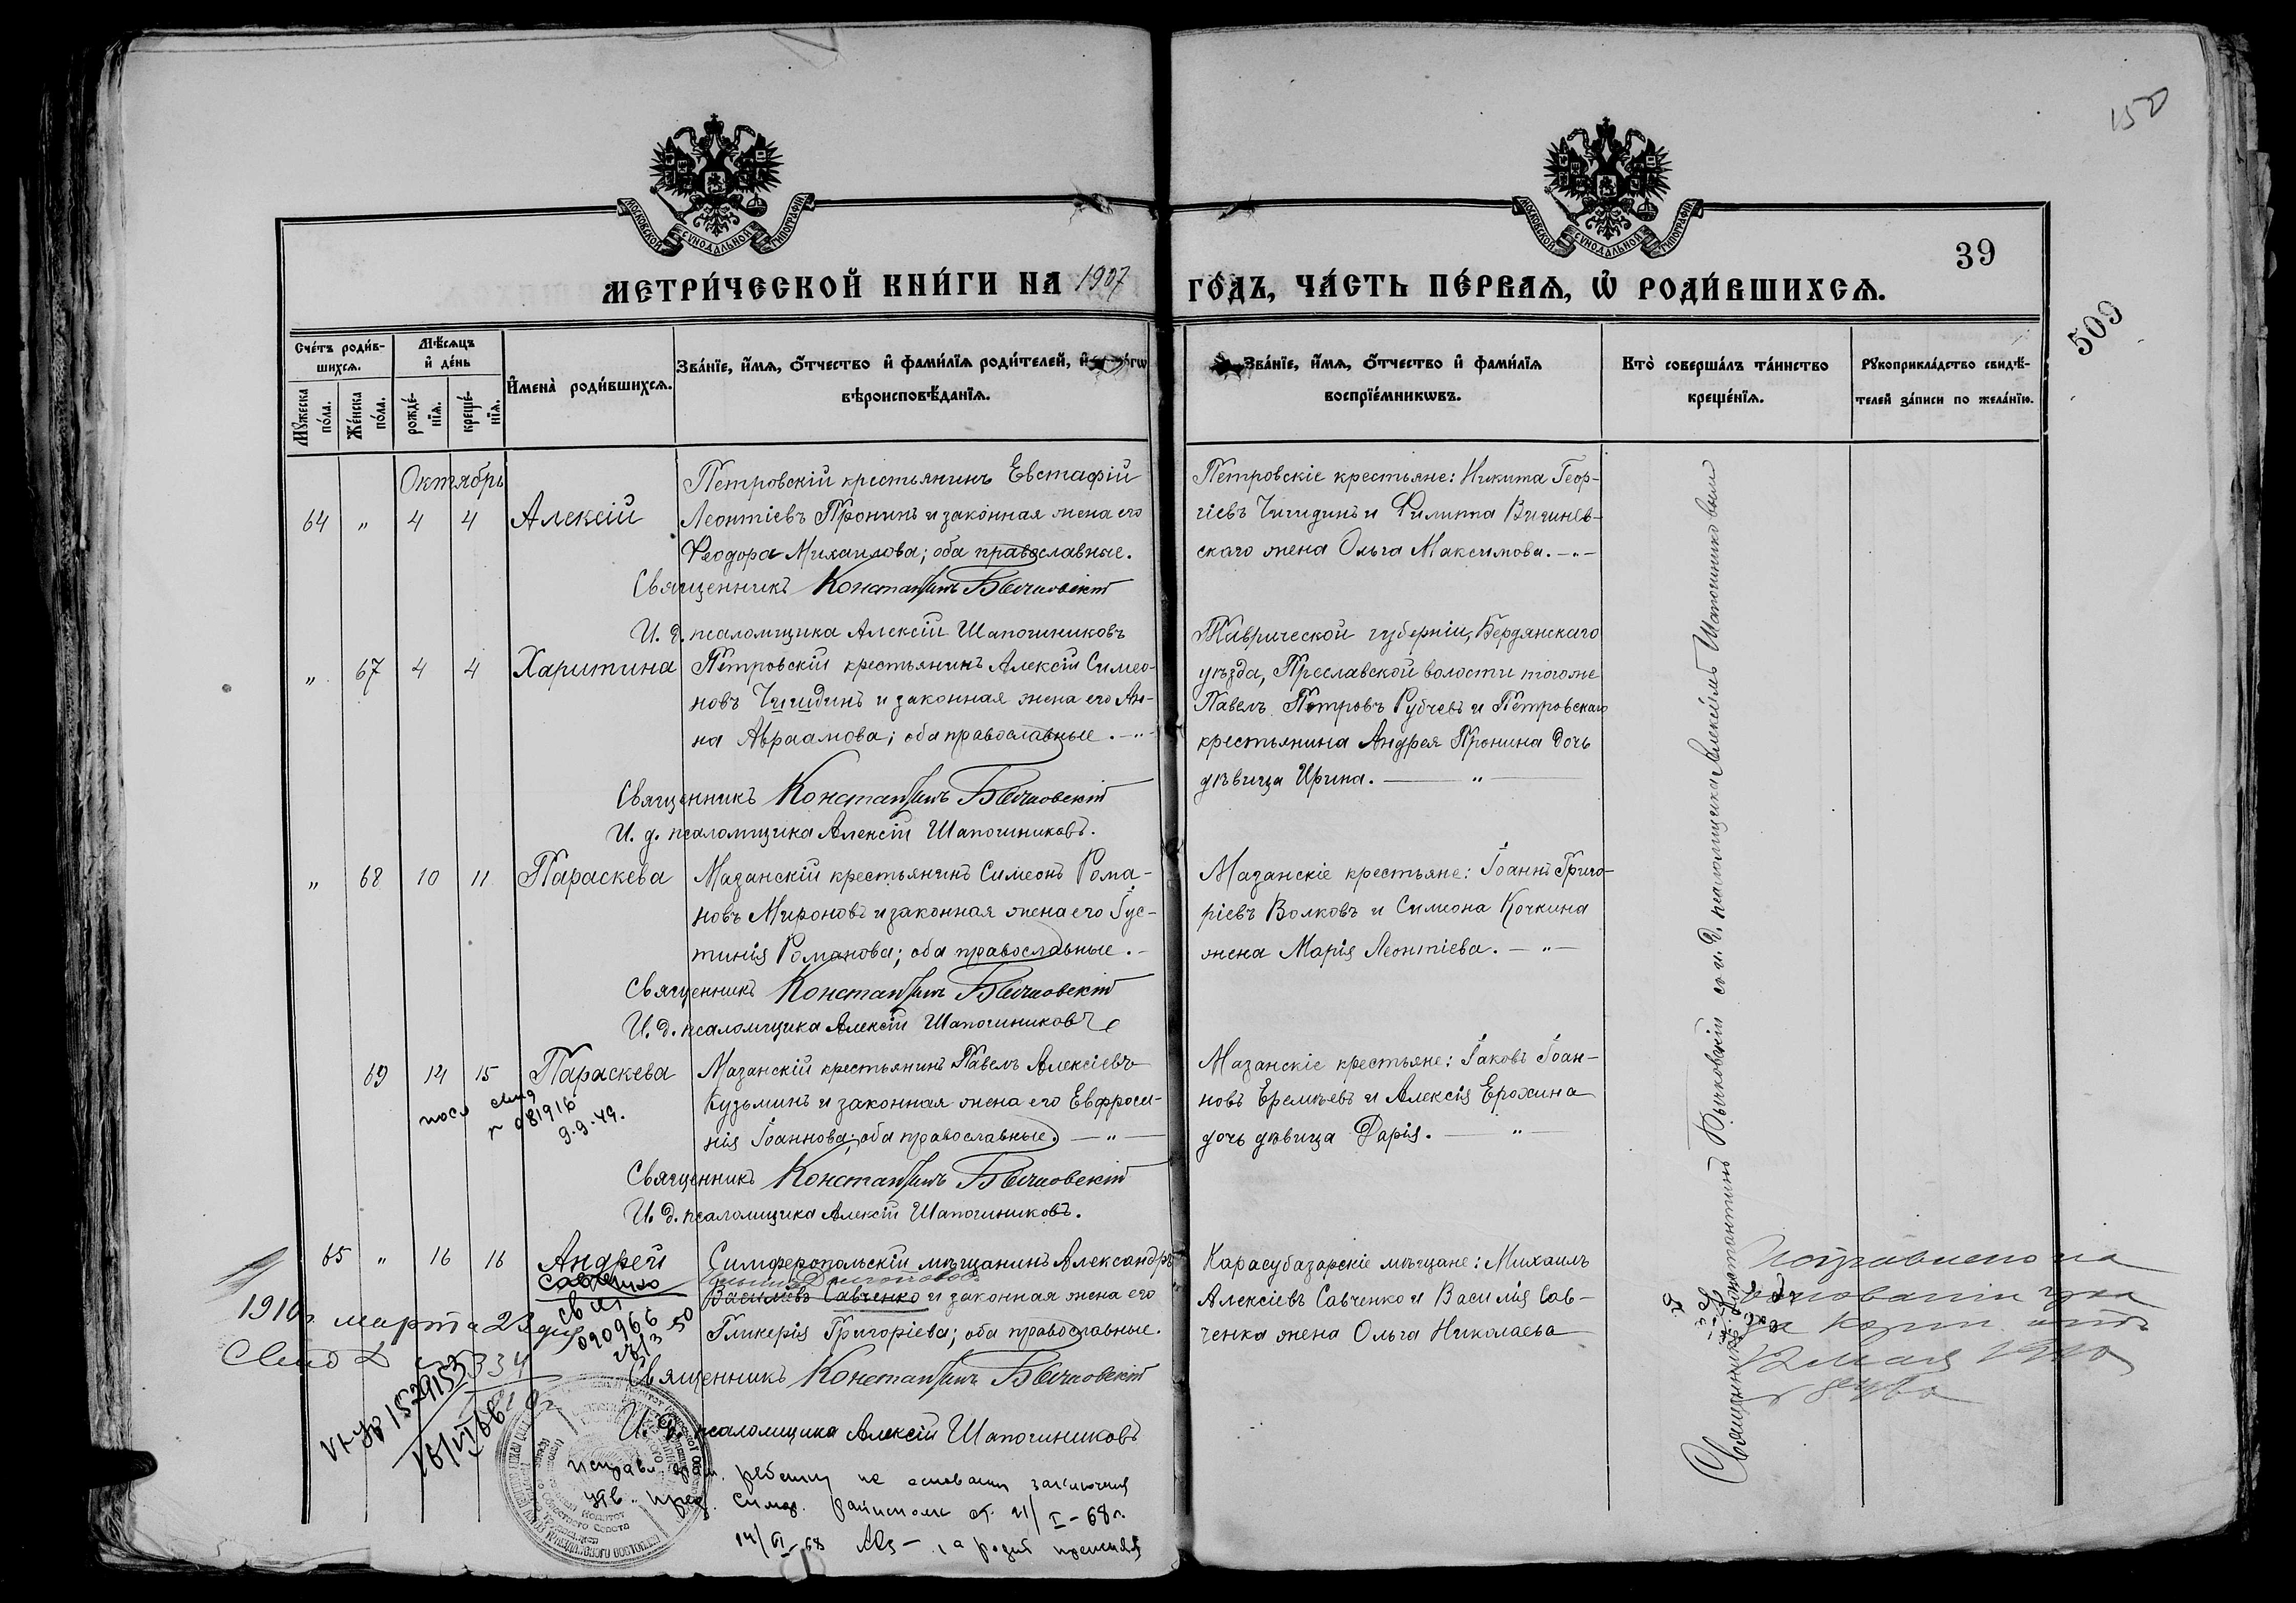 150
39
509
МОСКОВСКОЙ СѴНОДАЛЬНОЙ ТИПОГРАФІИ
МОСКОВСКОЙ СѴНОДАЛЬНОЙ ТИПОГРАФІИ
МЕТРИ́ЧЕСКОЙ КНИ́ГИ НА 1907 ГО́ДЪ, ЧА́СТЬ ПЕ́РВАѦ, Ѡ РОДИ́ВШИХСѦ.
Сче́тъ роди́в-
шихсѧ.
Мꙋ́жеска по́ла.
Же́нска по́ла.
Мѣ́сѧцъ
и҆ де́нь
рожде́-
нїѧ.
креще́-
нїѧ.
И҆мена̀ роди́вшихсѧ.
Зва́нїе, и҆́мѧ, ѻ҆́тчество и҆ фами́лїѧ роди́телей, и҆
вѣроисповѣ́данїѧ.
Зва́нїе, и҆́мѧ, ѻ҆́тчество и҆ фами́лїѧ
воспрїе́мникѡвъ.
Кто̀ соверша́лъ та́инство
креще́нїѧ.
Рꙋкоприкла́дство свидѣ́-
телей за́писи по жела́нїю.
Октябрь
64 „ 4 4 Алексій
Петровскій крестьянинъ Евстафій
Леонтіевъ Пронинъ и законная жена его
Ѳеодора Михаилова; оба православные.
Священникъ Константинъ Бычковскій
И. д. псаломщика Алексій Шапочниковъ
Петровскіе крестьяне: Никита Геор-
гіевъ Чигидинъ и Филиппа Вигинев-
скаго жена Ольга Максимова. — „ —
„ 67 4 4 Харитина
Петровскій крестьянинъ Алексій Симео-
новъ Чигидинъ и законная жена его Ан-
на Авраамова; оба православные. — „ —
Священникъ Константинъ Бычковскій
И. д. псаломщика Алексій Шапочниковъ.
Таврической губерніи, Бердянскаго
уѣзда, Преславской волости тогоже
Павелъ Петровъ Рубчевъ и Петровскаго
крестьянина Андрея Пронина дочь
дѣвица Ирина. — „ —
„ 68 10 11 Параскева
Мазанскій крестьянинъ Симеонъ Рома-
новъ Мироновъ и законная жена его Іус-
тинія Романова; оба православные. —
Священникъ Константинъ Бычковскій
И. д. псаломщика Алексій Шапочниковъ
Мазанскіе крестьяне: Іоаннъ Григо-
ріевъ Волковъ и Симеона Кочкина
жена Марія Леонтіева. — „ —
69 14 15 Параскева
9-9-49.
Мазанскій крестьянинъ Павелъ Алексіевъ
Кузьминъ и законная жена его Евфроси-
нія Іоаннова; оба православные. — „ —
Священникъ Константинъ Бычковскій
И. д. псаломщика Алексій Шапочниковъ.
Мазанскіе крестьяне: Іаковъ Іоан-
новъ Еремѣевъ и Алексія Ерохина
дочь дѣвица Дарія. — „ —
65 „ 16 16 Андрей
Симферопольскій мѣщанинъ Александръ
Василіевъ Савченко и законная жена его
Гликерія Григоріева; оба православные.
Священникъ Константинъ Бычковскій
И. д. псаломщика Алексій Шапочниковъ
Карасубазарскіе мѣщане: Михаилъ
Алексіевъ Савченко и Василія Сав-
ченка жена Ольга Николаева
1910г. марта 23 дня
090966
16/VI 66
Священникъ Константинъ Бычковскій со и. д. псаломщика Алексіемъ Шапочниковымъ